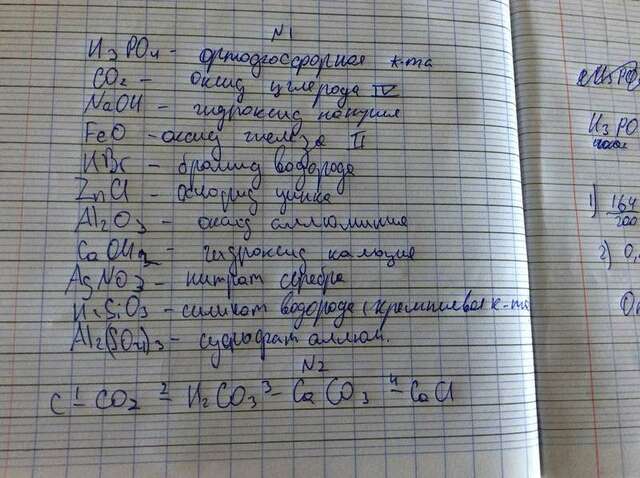 N1
H3PO4 - ортофосфорная к-та
CO2 - оксид углерода IV
NaOH - гидроксид натрия
FeO - оксид железа II
HBr - бромид водорода
ZnCl - хлорид цинка
Al2O3 - оксид аллюминия
CaOH2 - гидроксид кальция
AgNO3 - нитрат серебра
H2SiO3 - силикат водорода (кремниевая к-та
Al2(SO4)3 - сульфат аллюм.
N2
C 1- CO2 2- H2CO3 3- CaCO3 4- CaCl
H3PO
1) 164
200
2) 0,